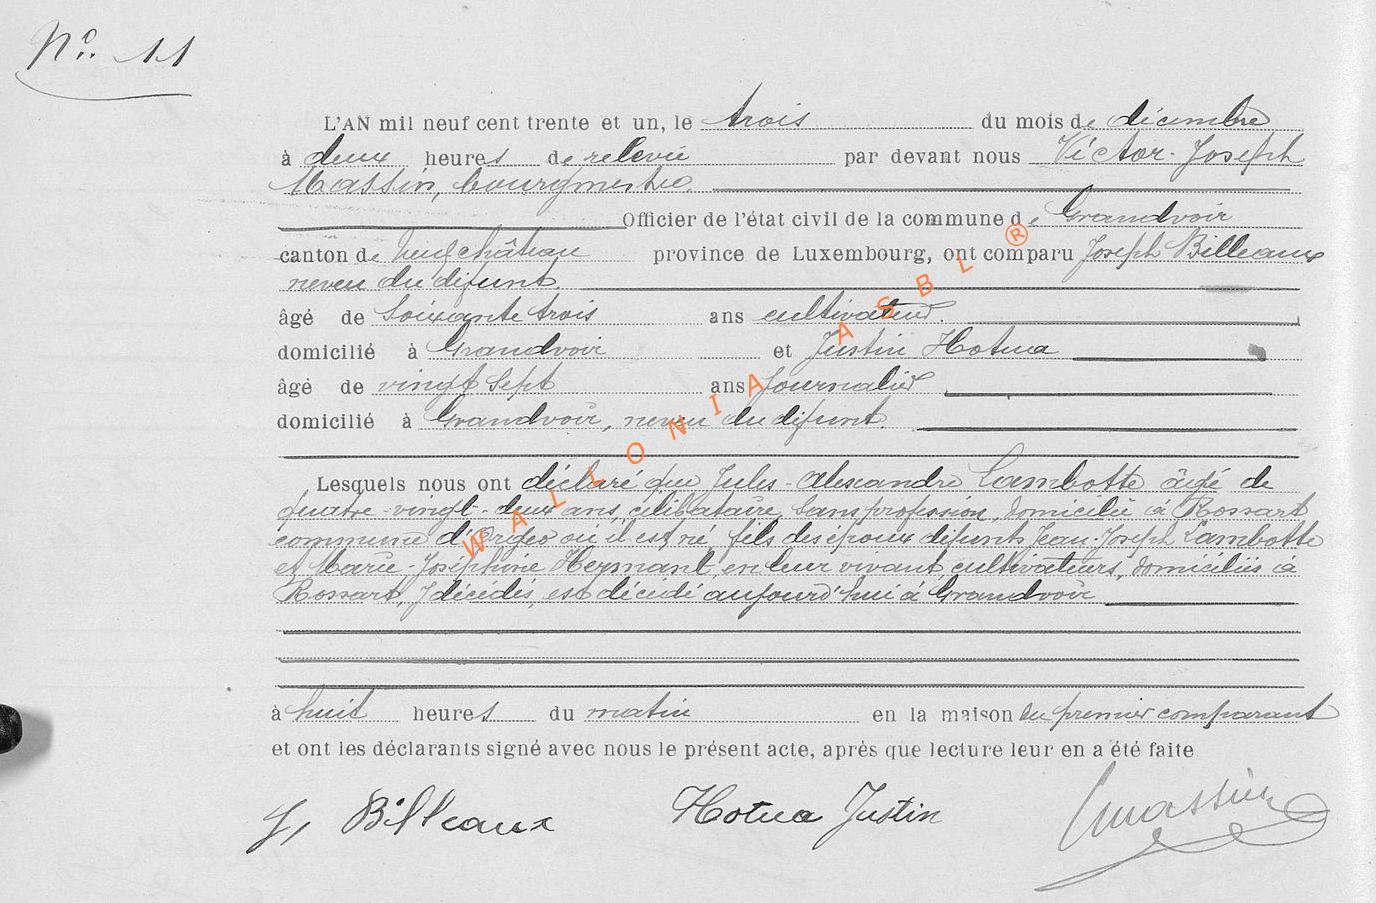 N° 11
L'AN mil neuf cent trente et un, le trois du mois de décembre
à deux heures de relevée par devant nous Victor-Joseph
Massin, bourgmestre
Officier de l'état civil de la commune de Grandvoir
canton de Neufchâteau province de Luxembourg, ont comparu Joseph Billeaux
neveu du défunt
âgé de soixante trois ans cultivateur.
domicilié à Grandvoir et Justin Hotua
âgé de vingt sept ans journalier
domicilié à Grandvoir, neveu du défunt.
Lesquels nous ont déclaré que Jules-Alexandre Lambotte âgé de
quatre-vingt-deux ans, célibataire, sans profession, domicilié à Rossart
commune d'Orgeo où il est né, fils des époux défunts Jean-Joseph Lambotte
et Marie-Joséphine Heymant, en leur vivant, cultivateurs, domiciliés à
Rossart, y décédés, est décédé aujourd'hui à Grandvoir
à huit heures du matin en la maison du premier comparant
et ont les déclarants signé avec nous le présent acte, après que lecture leur en a été faite
J, Billeaux Hotua Justin Massin
WALLONIA ASBL ®